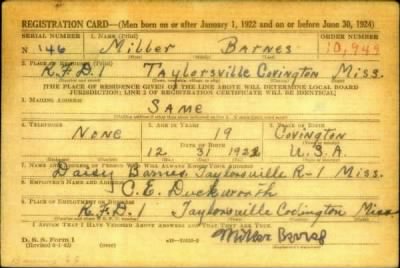 REGISTRATION CARD—(Men born on or after January 1, 1922 and on or before June 30, 1924)
SERIAL NUMBER 1. NAME (Print) ORDER NUMBER
N 146 Miller Barnes 10,949
2. PLACE OF RESIDENCE (Print)
R.F.D. 1 Taylorsville Covington Miss.
[THE PLACE OF RESIDENCE GIVEN ON THE LINE ABOVE WILL DETERMINE LOCAL BOARD
JURISDICTION; LINE 2 OF REGISTRATION CERTIFICATE WILL BE IDENTICAL]
3. MAILING ADDRESS
SAME
4. TELEPHONE 5. AGE IN YEARS 6. PLACE OF BIRTH
None 19 Covington
DATE OF BIRTH
12 31 1922 U.S.A.
7. NAME AND ADDRESS OF PERSON WHO WILL ALWAYS KNOW YOUR ADDRESS
Daisy Barnes, Taylorsville R-1 Miss.
8. EMPLOYER'S NAME AND ADDRESS
C. E. Duckworth
9. PLACE OF EMPLOYMENT
R.F.D. 1 Taylorsville Covington Miss.
I AFFIRM THAT I HAVE VERIFIED ABOVE ANSWERS AND THAT THEY ARE TRUE.
D. S. S. Form 1
Miller Barnes